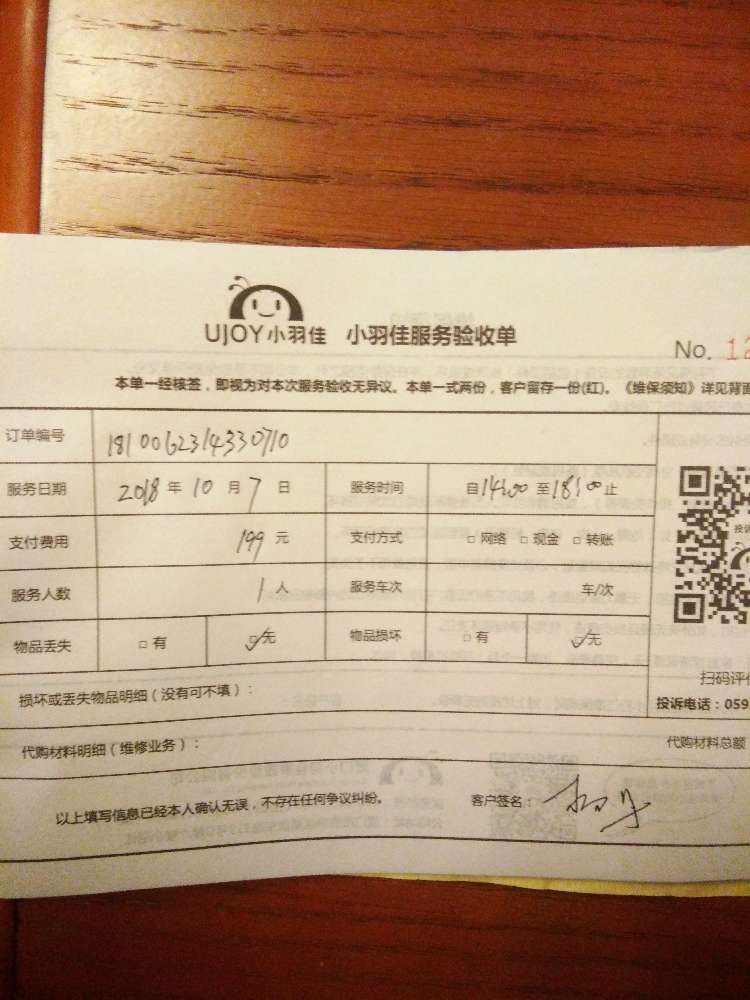 UJOY小羽佳 小羽佳服务验收单
No. 12
本单一经核签，即视为对本次服务验收无异议。本单一式两份，客户留存一份(红)。《维保须知》详见背面
订单编号 1810062314330710
服务日期 2018年10月7日 服务时间 自14:00至18:00止
支付费用 199元 支付方式 □网络 □现金 □转账
投诉
服务人数 1人 服务车次 车/次
物品丢失 □有 ☑无 物品损坏 □有 ☑无
扫码评价
损坏或丢失物品明细（没有可不填）： 投诉电话：059
代购材料明细（维修业务）： 代购材料总额
以上填写信息已经本人确认无误，不存在任何争议纠纷。 客户签名：